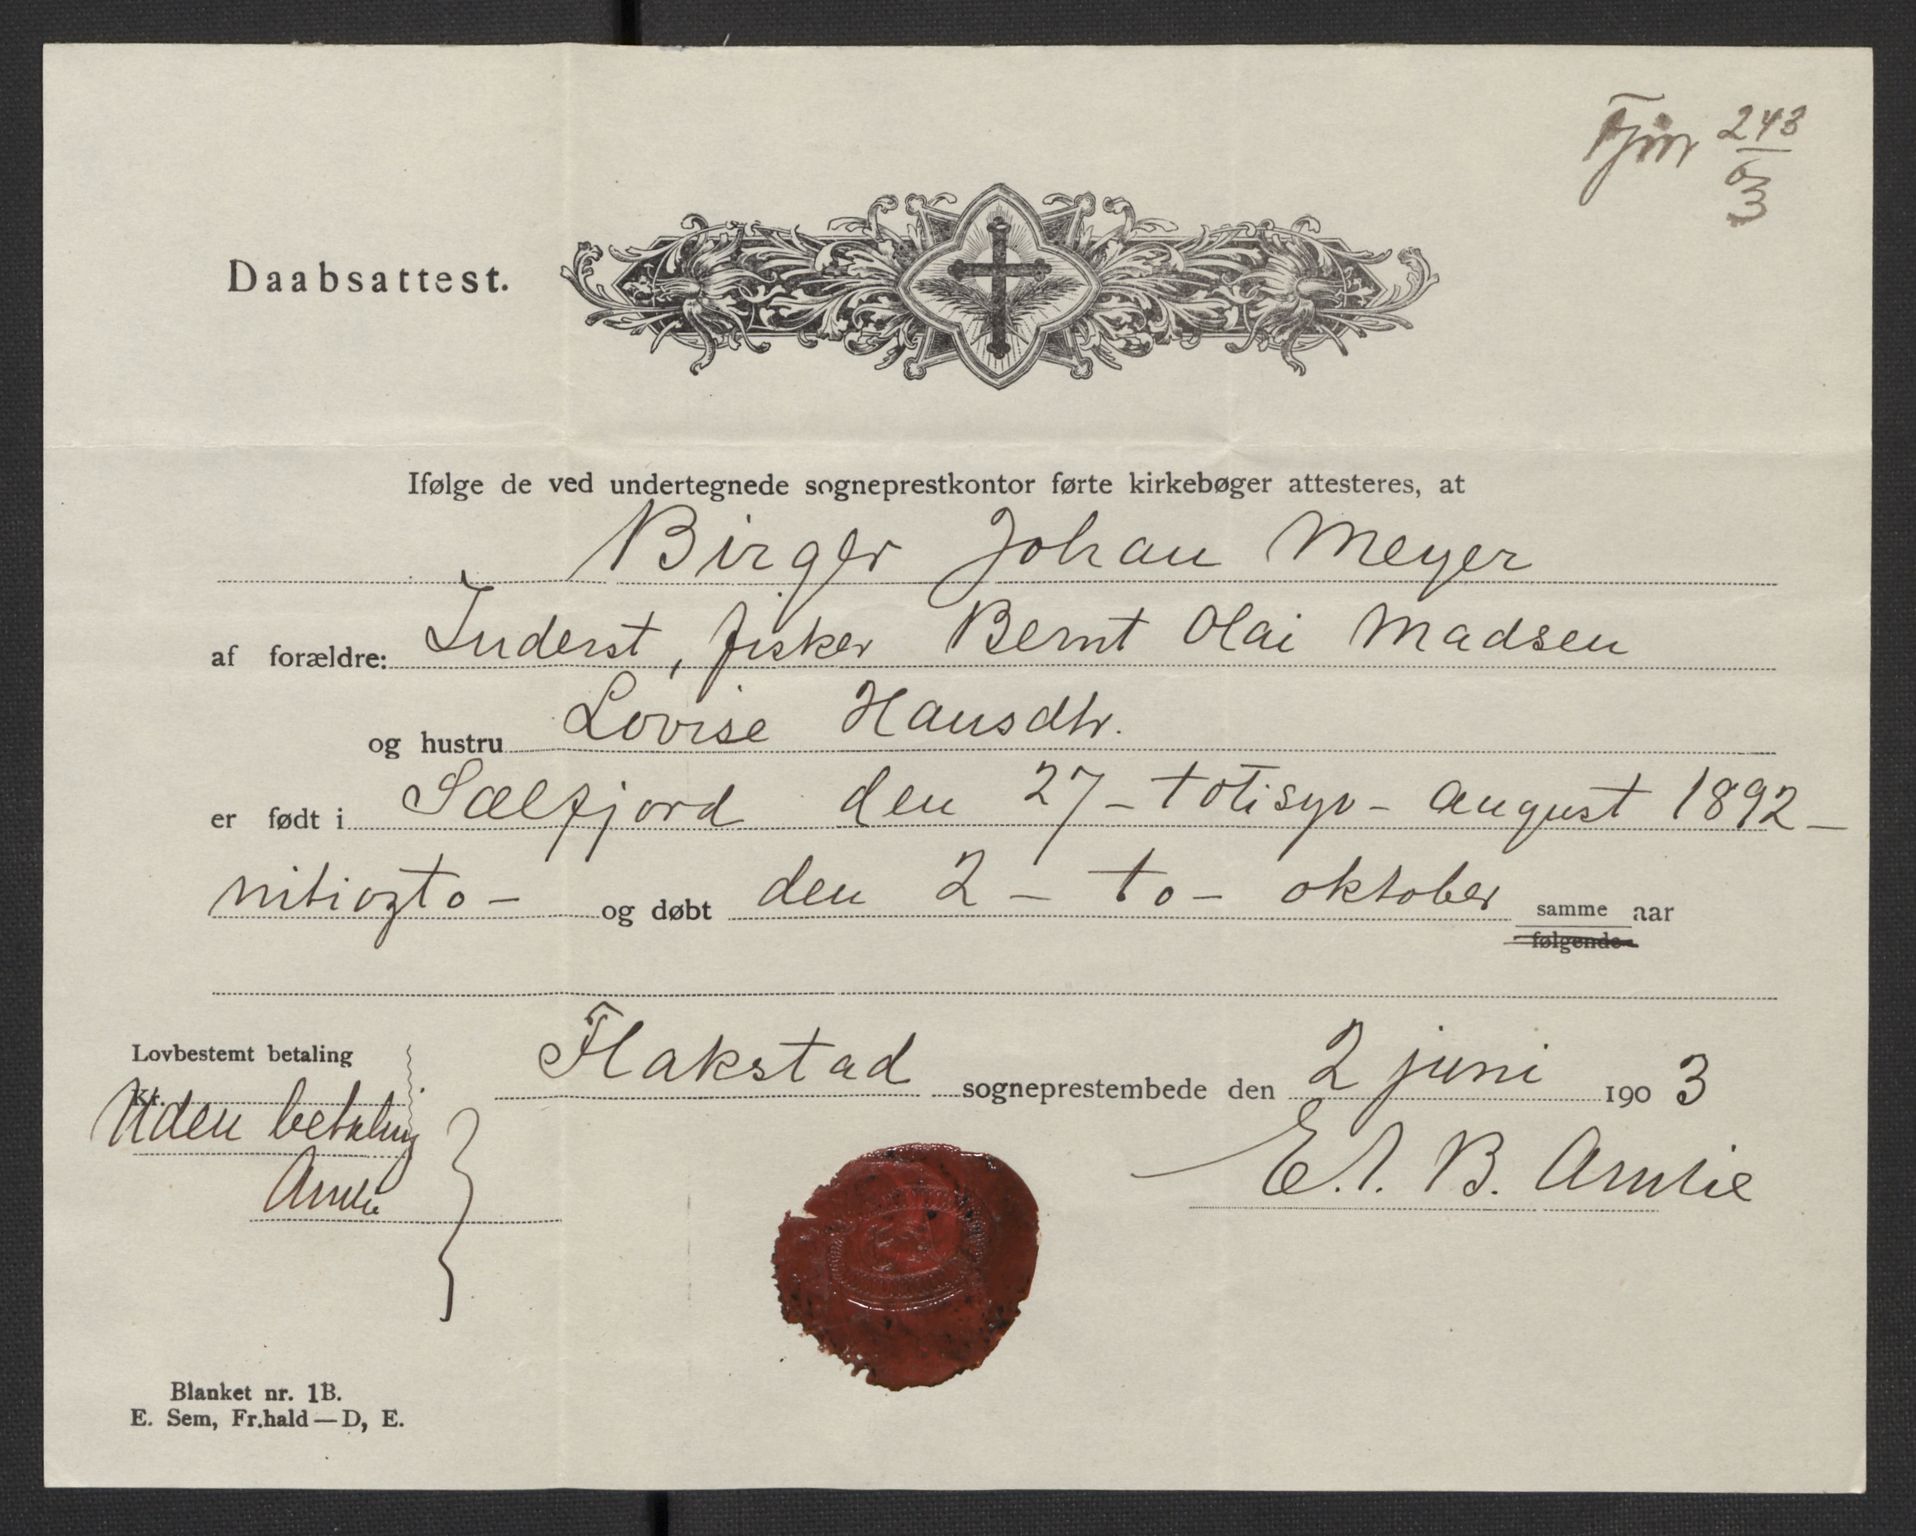 243
6
3
Daabsattest.
Ifølge de ved undertegnede sogneprestkontor førte kirkebøger attesteres, at
Birger Johan Meyer
af forældre: Inderst, fisker Bernt Olai Madsen
og hustru Lovise Hansdtr.
er født i Sælfjord den 27 - totisyv - august 1892 -
nitiogto - og døbt den 2 - to - oktober samme aar
følgende
Lovbestemt betaling
Kr.
Uden betaling
Flakstad sogneprestembede den 2 juni 1903
E. A. B. Arnlie
Arnlie
Blanket nr. 1B.
E. Sem, Fr.hald — D, E.